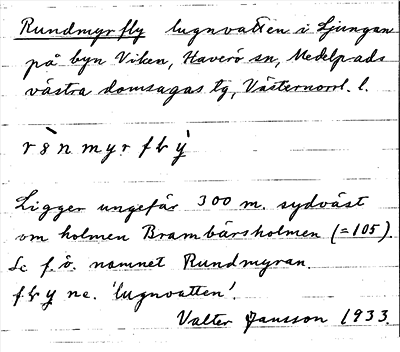 Rundmyrfly lugnvatten i Ljungan
på byn Viken, Haverö sn, Medelpads
västra domsagas tg, Västernorrl. l.
Ligger ungefär 300 m. sydväst
om holmen Brambärsholmen (=105).
Se f. ö. namnet Rundmyran.
ne. 'lugnvatten'.
Valter Jansson 1933.